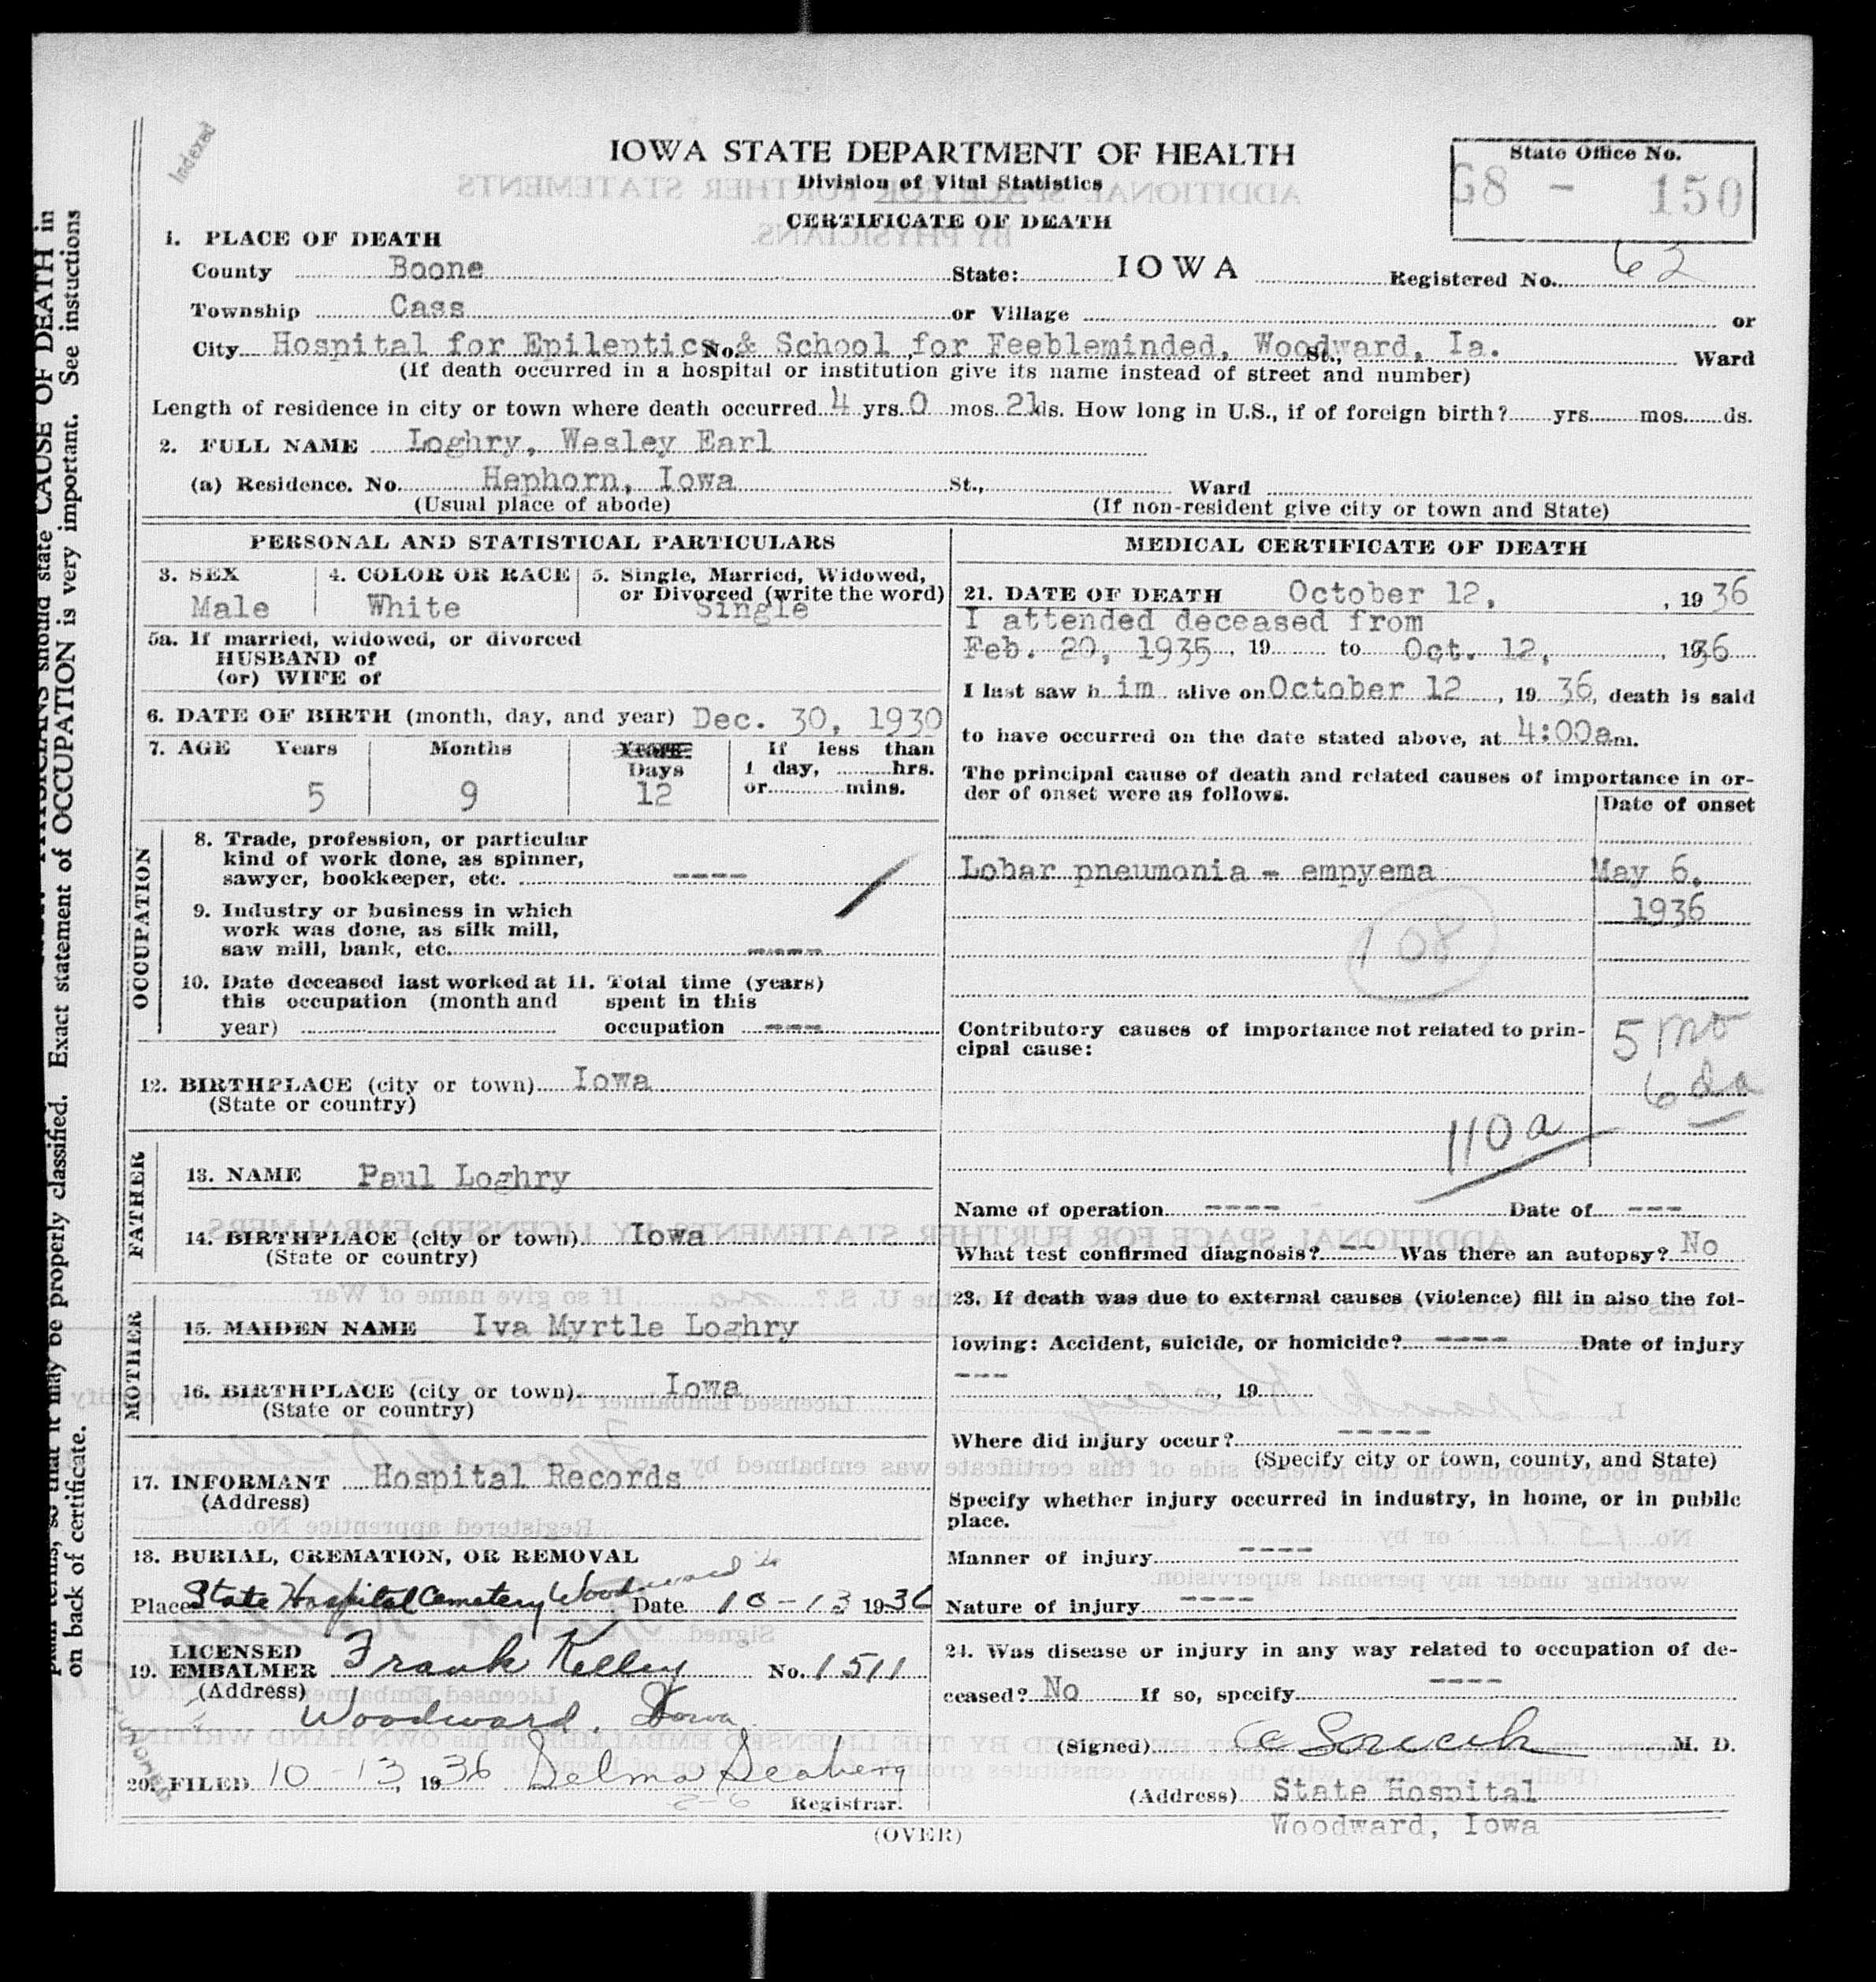 Indexed
IOWA STATE DEPARTMENT OF HEALTH
Division of Vital Statistics
CERTIFICATE OF DEATH
State Office No.
G8 - 150
1. PLACE OF DEATH
County Boone State: IOWA Registered No. 62
Township Cass or Village or
City Hospital for Epileptics No. & School for Feebleminded, Woodward, Ia. St., Ward
(If death occurred in a hospital or institution give its name instead of street and number)
Length of residence in city or town where death occurred 4 yrs. 0 mos. 21 ds. How long in U.S., if of foreign birth? yrs. mos. ds.
2. FULL NAME Loghry, Wesley Earl
(a) Residence. No. Hephorn, Iowa St., Ward
(Usual place of abode) (If non-resident give city or town and State)
PERSONAL AND STATISTICAL PARTICULARS
3. SEX 4. COLOR OR RACE 5. Single, Married, Widowed,
or Divorced (write the word)
Male White Single
5a. If married, widowed, or divorced
HUSBAND of
(or) WIFE of
6. DATE OF BIRTH (month, day, and year) Dec. 30, 1930
7. AGE Years Months Years If less than
Days 1 day, hrs.
or mins.
5 9 12
OCCUPATION
8. Trade, profession, or particular
kind of work done, as spinner,
sawyer, bookkeeper, etc. ----
9. Industry or business in which
work was done, as silk mill,
saw mill, bank, etc. ----
10. Date deceased last worked at 11. Total time (years)
this occupation (month and spent in this
year) occupation ---
12. BIRTHPLACE (city or town) Iowa
(State or country)
FATHER
13. NAME Paul Loghry
14. BIRTHPLACE (city or town) Iowa
(State or country)
MOTHER
15. MAIDEN NAME Iva Myrtle Loghry
16. BIRTHPLACE (city or town) Iowa
(State or country)
17. INFORMANT Hospital Records
(Address)
18. BURIAL, CREMATION, OR REMOVAL
Place State Hospital Cemetery Woodward Ia Date 10-13 1936
LICENSED
19. EMBALMER Frank Kelley No. 1511
(Address)
Woodward, Iowa
20. FILED 10-13, 1936 Delma Seaberg
Registrar.
MEDICAL CERTIFICATE OF DEATH
21. DATE OF DEATH October 12, , 1936
I attended deceased from
Feb. 20, 1935, 19 to Oct. 12, , 1936
I last saw him alive on October 12, 1936, death is said
to have occurred on the date stated above, at 4:00am.
The principal cause of death and related causes of importance in or-
der of onset were as follows.
Date of onset
Lobar pneumonia - empyema May 6,
1936
108
Contributory causes of importance not related to prin-
cipal cause:
5 mo
6 da
110a
Name of operation ---- Date of ---
What test confirmed diagnosis? -- Was there an autopsy? No
23. If death was due to external causes (violence) fill in also the fol-
lowing: Accident, suicide, or homicide? ---- Date of injury
--- , 19
Where did injury occur? -----
(Specify city or town, county, and State)
Specify whether injury occurred in industry, in home, or in public
place.
Manner of injury ----
Nature of injury ----
24. Was disease or injury in any way related to occupation of de-
ceased? No If so, specify ----
(Signed) M. D.
(Address) State Hospital
Woodward, Iowa
(OVER)
should state CAUSE OF DEATH in
Exact statement of OCCUPATION is very important. See instuctions
terms, so that it may be properly classified.
on back of certificate.